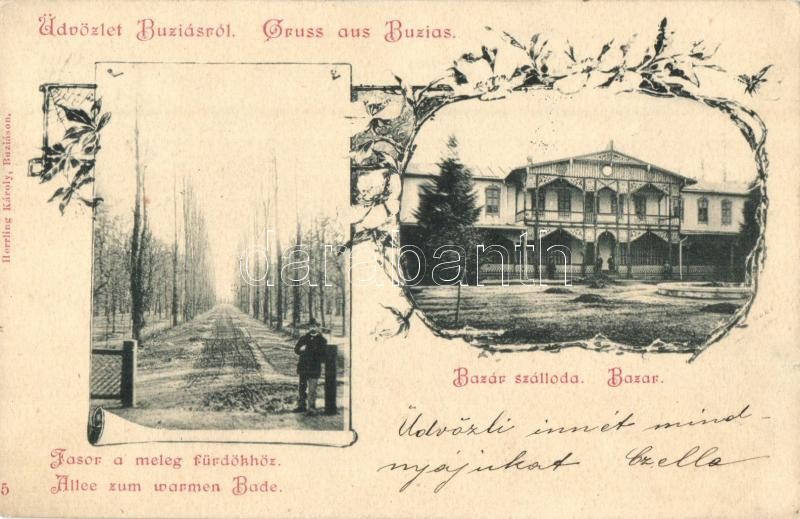 Üdvözlet Buziásról. Gruss aus Buzias.
Herrling Károly, Buziáson.
darabanth
Bazár szálloda. Bazar.
Fasor a meleg fürdőkhöz.
Allee zum warmen Bade.
5
Üdvözli innét mind-
nyájukat Czella